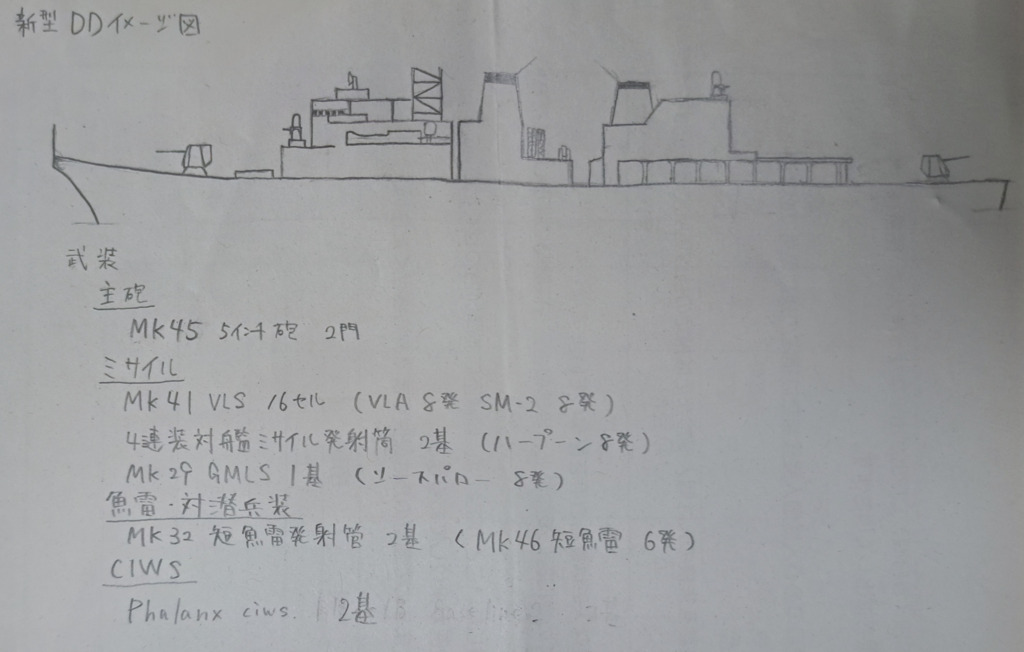 新型 DDイメージ図
武装
主砲
MK45 5インチ砲 2門
ミサイル
MK41 VLS 16セル (VLA 8発 SM-2 8発)
4連装対艦ミサイル発射筒 2基 (ハープーン8発)
MK29 GMLS 1基 (シースパロー 8発)
魚雷・対潜兵装
MK32 短魚雷発射管 2基 (MK46短魚雷 6発)
CIWS
Phalanx ciws. 2基